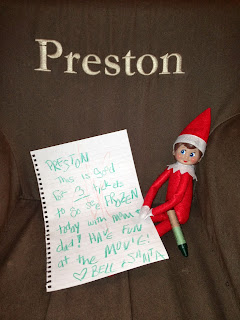 Preston
PRESTON
This is good
for 3 tickets
to go see FROZEN
today with mom +
dad! HAVE FUN
at the MOVIE!
♡ BELL + SANTA